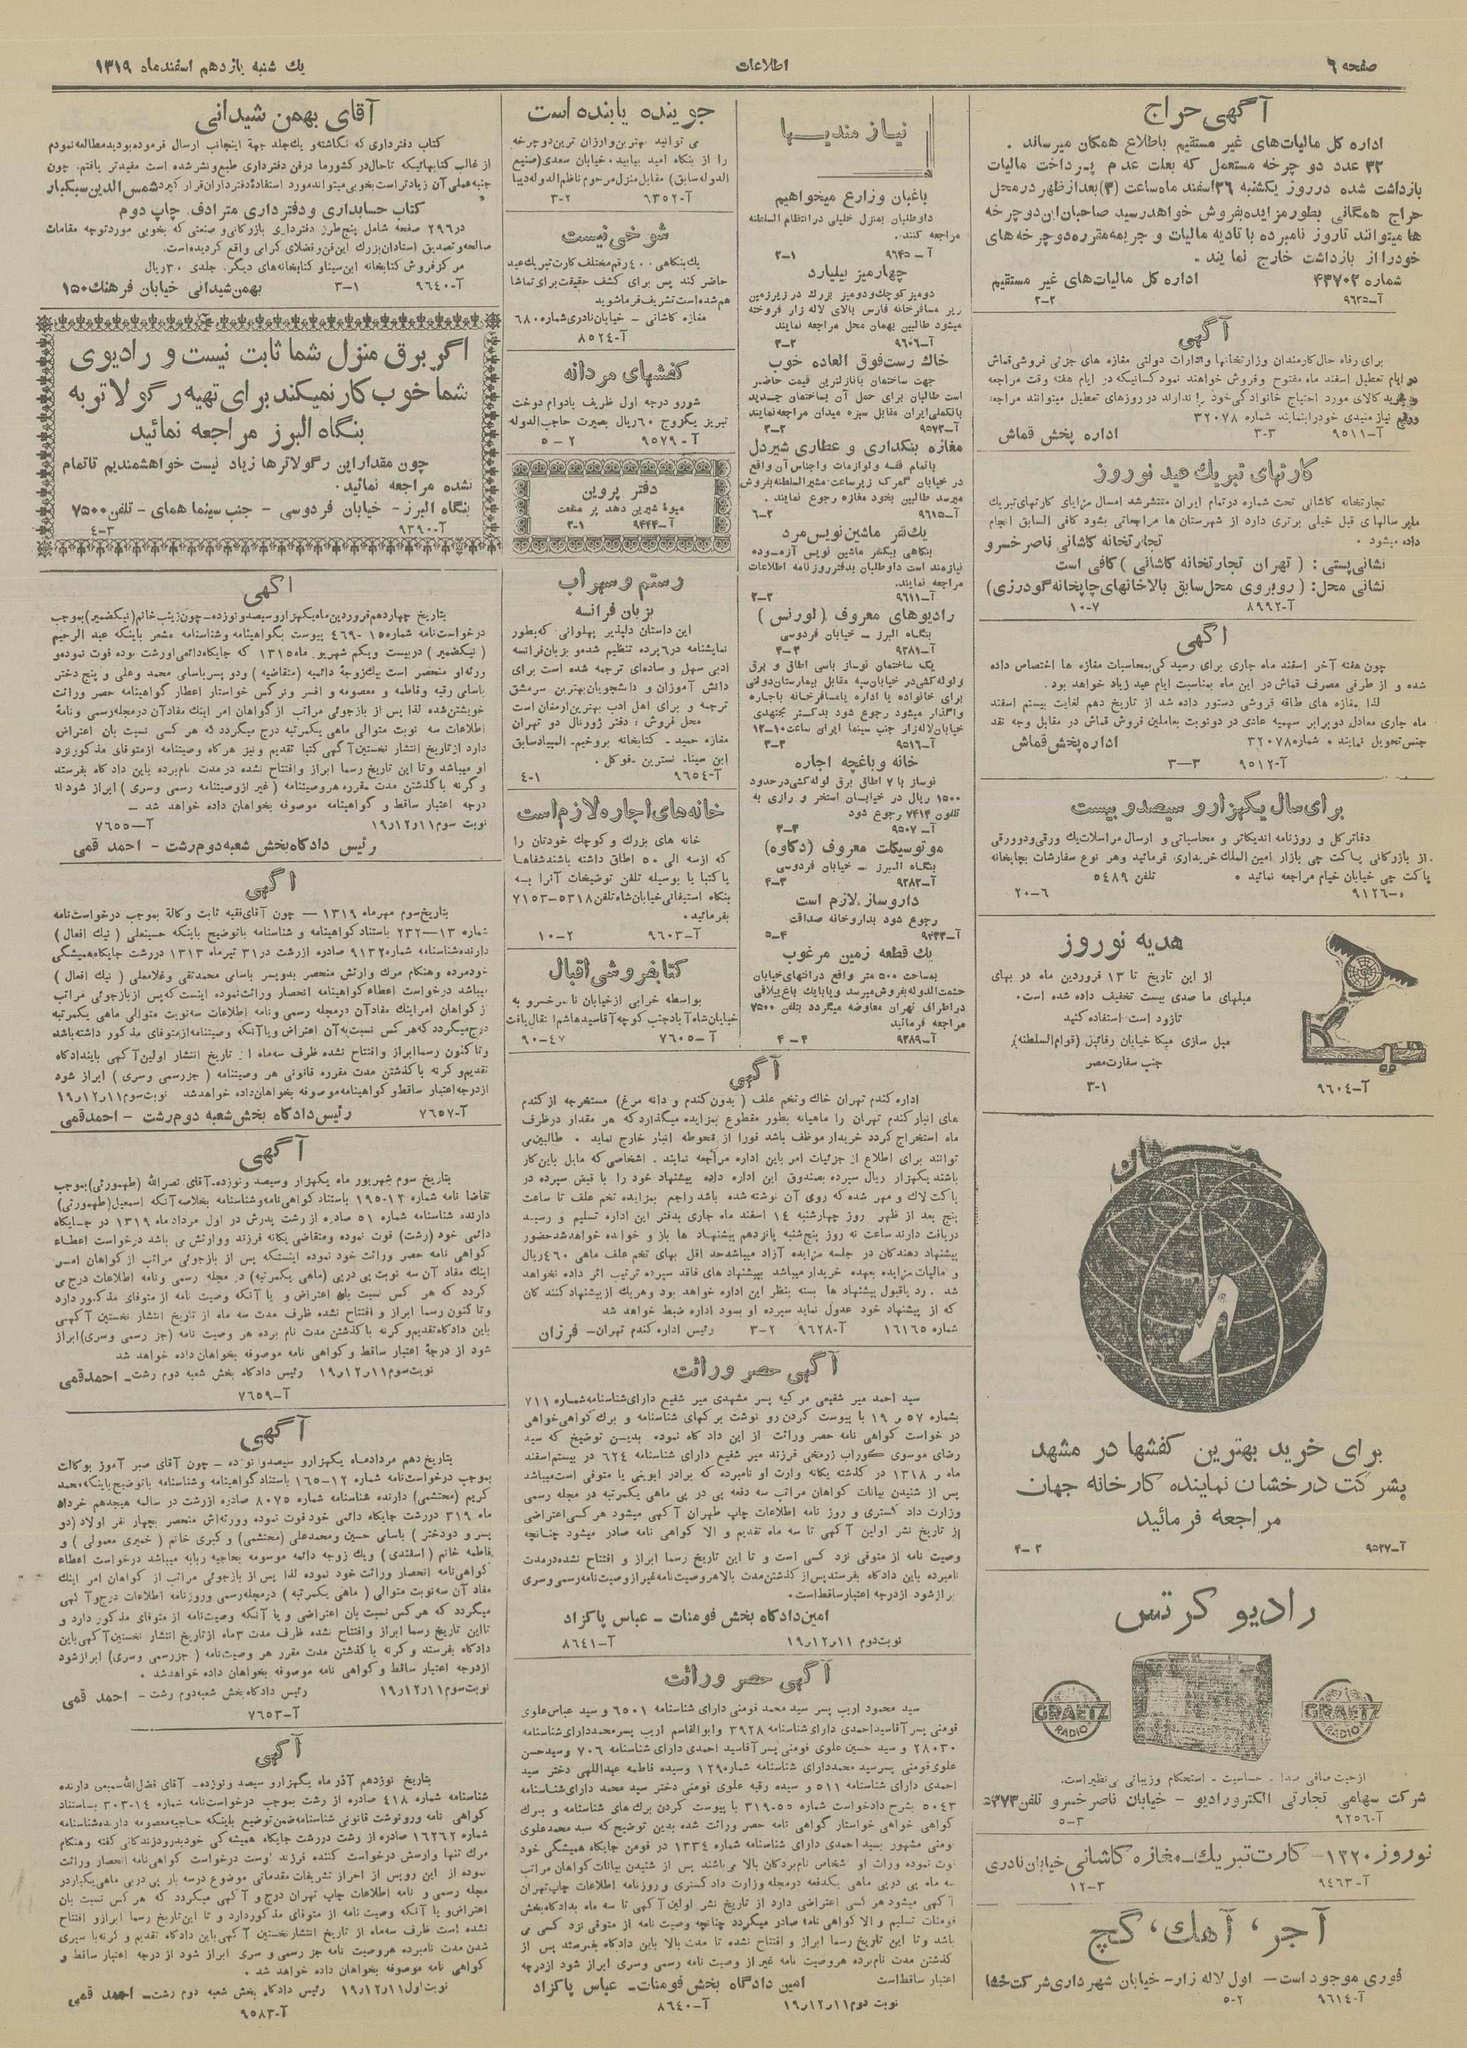 صفحه ۶
اطلاعات
یك شنبه یازدهم اسفندماه ۱۳۱۹
آگهی حراج
اداره کل مالیات‌های غیر مستقیم باطلاع همکان میرساند .
۳۲ عدد دو چرخه مستعمل که بعلت عدم پرداخت مالیات
بازداشت شده در روز یکشنبه ۲۶ اسفند ماه ساعت (۳) بعد از ظهر در محل
حراج همگانی بطور مزایده بفروش خواهد رسید صاحبان این دو چرخه
ها میتوانند تا روز نامبرده با تادیه مالیات و جریمه مقرره دو چرخه های
خود را از بازداشت خارج نمایند .
شماره ۴۳۷۰۲ اداره کل مالیات‌های غیر مستقیم
آ-۹۶۲۵ ۲-۲
آگهی
برای رفاه حال کارمندان وزارتخانها و ادارات دولتی مغازه های جزئی فروشی قماش
در ایام تعطیل اسفند ماه مفتوح و فروش خواهند نمود کسانیکه در ایام هفته وقت مراجعه
و خرید کالای مورد احتیاج خانوادگی خود را ندارند در روزهای تعطیل میتوانند مراجعه
و رفع نیازمندی خود را بنمایند شماره ۳۲۰۷۸
آ-۹۵۱۱ ۳-۳ اداره پخش قماش
کارتهای تبریك عید نوروز
تجارتخانه کاشانی تحت شماره در تمام ایران منتشر شد امسال مزایای کارتهای تبریك
ما بر سالهای قبل خیلی برتری دارد از شهرستان ها مراجعاتی بشود کافی السابق انجام
داده میشود . تجارتخانه کاشانی ناصر خسرو
نشانی پستی : ( تهران تجارتخانه کاشانی ) کافی است
نشانی محل: ( روبروی محل سابق بالاخانهای چاپخانه گودرزی)
آ-۸۹۹۲ ۱۰-۷
آگهی
چون هفته آخر اسفند ماه جاری برای رسیدگی بمحاسبات مغازه ها اختصاص داده
شده و از طرفی مصرف قماش در این ماه بمناسبت ایام عید زیاد خواهد بود .
لذا بمغازه های طاقه فروشی دستور داده شد از تاریخ دهم لغایت بیستم اسفند
ماه جاری معادل دو برابر سهمیه عادی در دو نوبت بعاملین فروش قماش در مقابل وجه نقد
جنس تحویل نمایند . شماره ۳۲۰۷۸ اداره پخش قماش
آ-۹۵۱۲ ۳-۳
برای سال یکهزار و سیصد و بیست
دفاتر کل و روزنامه اندیکاتر و محاسباتی و ارسال مراسلات یك ورقی و دو ورقی
از بازرگانی پاکت چی بازار امین الملك خریداری فرمائید و هر نوع سفارشات بچاپخانه
پاکت چی خیابان خیام مراجعه نمائید . تلفن ۵۴۸۹
آ-۹۱۲۶ ۲۰-۶
هدیه نوروز
از این تاریخ تا ۱۳ فروردین ماه در بهای
مبلهای ما صدی بیست تخفیف داده شده است.
تا زود است استفاده کنید
مبل سازی میکا خیابان رفائیل (قوام السلطنه)
جنب سفارت مصر
آ-۹۶۰۴ ۳-۱
برای خرید بهترین کفشها در مشهد
بشرکت درخشان نماینده کارخانه جهان
مراجعه فرمائید
آ-۹۵۲۷ ۴-۲
رادیو کرتس
GRAETZ RADIO
GRAETZ RADIO
از حیث صافی صدا - حساسیت - استحکام و زیبائی بی‌نظیر است.
شرکت سهامی تجارتی الکترورادیو - خیابان ناصر خسرو
آ-۹۲۵۶ ۵-۳
نوروز ۱۳۲۰ - کارت تبریك - مغازه کاشانی خیابان نادری
آ-۹۴۶۳ ۱۲-۳
آجر، آهك، گچ
فوری موجود است - اول لاله زار - خیابان شهرداری شرکت خشا
آ-۹۶۱۴ ۵-۲
نیازمندیها
باغبان و زارع میخواهیم
داوطلبان بمنزل خلیلی در انتظام السلطنه
مراجعه کنند.
آ-۹۶۴۵ ۲-۱
چهار میز بیلیارد
دو میز کوچك و دو میز بزرك در زیر زمین
زیر مسافرخانه فارس بالای لاله زار فروخته
میشود طالبین بهمان محل مراجعه نمایند
آ-۹۶۰۶ ۳-۲
خاك رست فوق العاده خوب
جهت ساختمان با نازلترین قیمت حاضر
است طالبان برای حمل آن بساختمان جدید
بانك ملی ایران مقابل سبزه میدان مراجعه نمایند
آ-۹۵۷۲ ۳-۳
مغازه بنکداری و عطاری شیردل
با تمام قفسه و لوازمات و اجناس آن واقع
در خیابان گمرك زیر ساعت مشیر السلطنه بفروش
میرسد طالبین بخود مغازه رجوع نمایند .
آ-۹۶۱۵ ۶-۲
یك نفر ماشین نویس مرد
بنگاهی بیکنفر ماشین نویس آزموده
نیازمند است داوطلبان بدفتر روزنامه اطلاعات
مراجعه نمایند.
آ-۹۶۱۱ ۲-۲
رادیوهای معروف (لورنس)
بنگاه البرز - خیابان فردوسی
آ-۹۳۸۱ ۴-۴
یك ساختمان نوساز باسی اطاق و برق
و لوله کشی در خیابان سپه مقابل بیمارستان دولتی
برای خانواده یا اداره یا مسافرخانه باجاره
واگذار میشود رجوع شود بدکتر مجتهدی
خیابان لاله زار جنب سینما ایران ساعت ۱۰-۱۲
آ-۹۵۱۶ ۳-۳
خانه و باغچه اجاره
نوساز با ۷ اطاق برق لوله کشی در حدود
۱۵۰۰ ریال در خیابان استخر و رازی به
تلفون ۷۴۱۴ رجوع شود
آ-۹۵۰۷ ۳-۳
موتوسیکلت معروف (دکاوه)
بنگاه البرز - خیابان فردوسی
آ-۹۳۸۲ ۴-۴
دارو ساز لازم است
رجوع شود بداروخانه صداقت
آ-۹۴۳۳ ۵-۴
یك قطعه زمین مرغوب
بمساحت ۵۰۰ متر واقع در انتهای خیابان
حشمت الدوله بفروش میرسد و یا با یك باغ ییلاقی
در اطراف تهران معاوضه میگردد بتلفن ۷۵۰۰
مراجعه فرمائید
آ-۹۳۸۹ ۴-۴
جوینده یابنده است
می توانید بهترین و ارزان ترین دو چرخه
را از بنگاه امید بیابید. خیابان سعدی (صنیع
الدوله سابق) مقابل منزل مرحوم ناظم الدوله دیبا
آ-۹۳۵۲ ۳-۲
شوخی نیست
یك بنگاهی ۴۰۰ رقم مختلف کارت تبریك عید
حاضر کند پس برای کشف حقیقت برای تماشا
هم شده است تشریف فرما شوید
مغازه کاشانی - خیابان نادری شماره ۶۸۰
آ-۸۵۲۴
کفشهای مردانه
شورو درجه اول ظریف بادوام دوخت
تبریز یکزوج ۶۰ ریال بصیرت حاجب الدوله
آ-۹۵۷۹ ۵-۲
دفتر پروین
میوهٔ شیرین دهد پر منفعت
آ-۹۴۴۴ ۳-۱
رستم و سهراب
بزبان فرانسه
این داستان دلپذیر پهلوانی که بطور
نمایشنامه در ۶ پرده تنظیم شده و بزبان فرانسه
ادبی سهل و ساده‌ای ترجمه شده است برای
دانش آموزان و دانشجویان بهترین سرمشق
ترجمه و برای اهل ادب بهترین ارمغان است
محل فروش : دفتر ژورنال دو تهران
مغازه حمید - کتابخانه بروخیم - المپیاد سابق
ابن سینا- نسترین - فوکل .
آ-۹۶۵۴ ۴-۱
خانه‌های اجاره لازم است
خانه های بزرك و کوچك خودتان را
که از سه الی ۵۰ اطاق داشته باشند شفاها
یا کتبا یا بوسیله تلفن توضیحات آنرا به
بنگاه استیفائی خیابان شاه تلفن ۵۳۱۸-۷۱۵۳
بفرمائید.
آ-۹۶۰۳ ۱۰-۲
کتابفروشی اقبال
بواسطه خرابی از خیابان ناصر خسرو به
خیابان شاه آباد جنب کوچه آقا سید هاشم انتقال یافت
آ-۷۶۰۵ ۹۰-۴۷
آگهی
اداره گندم تهران خاك و تخم علف ( بدون گندم و دانه مرغ) مستخرجه از گندم
های انبار گندم تهران را ماهیانه بطور مقطوع بمزایده میگذارد که هر مقدار در ظرف
ماه استخراج گردد خریدار موظف باشد فورا از محوطه انبار خارج نماید . طالبین می
توانند برای اطلاع از جزئیات امر باین اداره مراجعه نمایند . اشخاصی که مایل باین کار
باشند یکهزار ریال سپرده بصندوق این اداره داده پیشنهاد خود را با قبض سپرده در
پاکت لاك و مهر شده که روی آن نوشته شده باشد راجع بمزایده تخم علف تا ساعت
پنج بعد از ظهر روز چهارشنبه ۱۴ اسفند ماه جاری بدفتر این اداره تسلیم و رسید
دریافت دارند ساعت نه روز پنج‌شنبه پانزدهم پیشنهاد ها باز و خوانده خواهد شد حضور
پیشنهاد دهندگان در جلسه مزایده آزاد میباشد حد اقل بهای تخم علف ماهی ۴۶۰ ریال
و مالیات مزایده بعهده خریدار میباشد بپیشنهاد های فاقد سپرده ترتیب اثر داده نخواهد
شد . رد یا قبول پیشنهاد ها بسته بنظر این اداره خواهد بود و هریك از پیشنهاد کنند کان
که از پیشنهاد خود عدول نماید سپرده او بسود اداره ضبط خواهد شد
شماره ۱۶۱۶۵ آ-۹۶۲۸ ۳-۲ رئیس اداره گندم تهران - فرزان
آگهی حصر وراثت
سید احمد میر شفیعی مرکیه پسر مشهدی میر شفیع دارای شناسنامه شماره ۷۱۱
بشماره ۵۷ر۱۹ با پیوست کردن رو نوشت برکهای شناسنامه و برك گواهی خواهی
در خواست گواهی نامه حصر وراثت از این دادگاه نموده بدین توضیح که سید
رضای موسوی گوراب زرمخی فرزند میر شفیع دارای شناسنامه ۶۲۴ در بیستم اسفند
ماه ۱۳۱۸ در گذشته یگانه وارث او نامبرده که برادر ابوینی با متوفی است میباشد
پس از شنیدن بیانات گواهان مراتب سه دفعه پی در پی ماهی یکمرتبه در مجله رسمی
وزارت دادگستری و روز نامه اطلاعات چاپ طهران آگهی میشود هر کسی اعتراضی
از تاریخ نشر اولین آگهی تا سه ماه تقدیم و الا گواهی نامه صادر میشود چنانچه
وصیت نامه از متوفی نزد کسی است و تا این تاریخ رسما ابراز و افتتاح نشده در مدت
نامبرده باین دادگاه بفرستد پس از گذشتن مدت بالا هر وصیت نامه غیر از وصیت نامه رسمی و سری
ابراز شود از درجه اعتبار ساقط است.
امین دادگاه بخش فومنات - عباس پاکزاد
نوبت دوم ۱۱ر۱۲ر۱۹ آ-۸۶۴۱
آگهی حصر وراثت
سید محمود ادیب پسر سید محمد فومنی دارای شناسنامه ۶۵۰۱ و سید عباس علوی
فومنی پسر آقا سید احمدی دارای شناسنامه ۳۹۲۸ و ابوالقاسم ادیب پسر محمد دارای شناسنامه
۲۸۰۳۰ و سید حسین علوی فومنی پسر آقا سید احمدی دارای شناسنامه ۷۰۶ و سید حسن
علوی فومنی پسر سید محمد دارای شناسنامه شماره ۱۲۹ و سیده فاطمه عبداللهی دختر سید
احمدی دارای شناسنامه ۵۱۱ و سیده رقیه علوی فومنی دختر سید محمد دارای شناسنامه
۵۰۴۳ بشرح دادخواست شماره ۵۵-۳۱۹ با پیوست کردن برك های شناسنامه و برك
گواهی خواهی خواستار گواهی نامه حصر وراثت شده بدین توضیح که سید محمد علوی
فومنی مشهور بسید احمدی دارای شناسنامه شماره ۱۳۳۴ در فومن جایگاه همیشگی خود
فوت نموده وراث او شخاص نام بردگان بالا می باشند پس از شنیدن بیانات گواهان مراتب
سه ماه پی در پی ماهی یکدفعه در مجله وزارت دادگستری و روزنامه اطلاعات چاپ تهران
آگهی میشود هر کسی اعتراضی دارد از تاریخ نشر اولین آگهی تا سه ماه بدادگاه بخش
فومنات تسلیم و الا گواهی نامه صادر میگردد چنانچه وصیت نامه از متوفی نزد کسی می
باشد و تا این تاریخ رسما ابراز و افتتاح نشده تا مدت بالا باین دادگاه بفرستد پس از
گذشتن مدت نام برده هر وصیت نامه غیر از وصیت نامه رسمی و سری ابراز شود از درجه
اعتبار ساقط است امین دادگاه بخش فومنات - عباس پاکزاد
نوبت دوم ۱۱ر۱۲ر۱۹ آ-۸۶۴۰
آقای بهمن شیدانی
کتاب دفترداری که نگاشته و یك جلد جهة اینجانب ارسال فرموده بودید مطالعه نمودم
از غالب کتابهائیکه تا حال در کشور ما در فن دفترداری طبع و نشر شده است مفیدتر یافتم. چون
جنبه عملی آن زیادتر است بخوبی میتواند مورد استفادهٔ دفترداران قرار گیرد شمس الدین سبکبار
کتاب حسابداری و دفترداری مترادف چاپ دوم
در ۲۹۶ صفحه شامل پنج طرز دفترداری بازرگانی و صنعتی که بخوبی مورد توجه مقامات
صالحه و تصدیق استادان بزرك این فن و فضلای گرامی واقع گردیده است.
مرکز فروش کتابخانه ابن سینا و کتابخانه های دیگر. جلدی ۳۰ ریال
آ-۹۶۴۰ ۳-۱ بهمن شیدانی خیابان فرهنك ۱۵۰
اگر برق منزل شما ثابت نیست و رادیوی
شما خوب کار نمیکند برای تهیه رگولاتر به
بنگاه البرز مراجعه نمائید
چون مقدار این رگولاترها زیاد نیست خواهشمندیم تا تمام
نشده مراجعه نمائید.
بنگاه البرز - خیابان فردوسی - جنب سینما همای - تلفن ۷۵۰۰
آ-۹۳۹۰ ۴-۳
آگهی
بتاریخ چهاردهم فروردین ماه یکهزار و سیصد و نوزده - چون زینب خانم (نیکضمیر) بموجب
درخواست نامه شماره ۱۵-۴۶۹ پیوست بگواهینامه و شناسنامه مشعر باینکه عبد الرحیم
( نیکضمیر ) در بیست و یکم شهریور ماه ۱۳۱۵ که جایگاه دائمی او رشت بوده فوت نموده و
ورثه او منحصر است بیك زوجهٔ دائمیه (متقاضیه ) و دو پسر باسامی محمد و علی و پنج دختر
باسامی رقیه و فاطمه و معصومه و افسر و نرگس خواستار اعطار گواهینامه حصر وراثت
خویشتن شده لذا پس از بازجوئی مراتب از گواهان امر اینك مفاد آن در مجله رسمی و نامهٔ
اطلاعات سه نوبت متوالی ماهی یکمرتبه درج میگردد که هر کسی نسبت بان اعتراض
دارد از تاریخ انتشار نخستین آگهی کتبا تقدیم و نیز هر گاه وصیتنامه از متوفای مذکور نزد
او میباشد و تا این تاریخ رسما ابراز و افتتاح نشده در مدت نام برده باین دادگاه بفرستد
و گرنه با گذشتن مدت مقرره هر وصیتنامه ( غیر از وصیتنامه رسمی و سری ) ابراز شود از
درجه اعتبار ساقط و گواهینامه موصوفه بخواهان داده خواهد شد -
نوبت سوم ۱۱ر۱۲ر۱۹ آ-۷۶۵۵
رئیس دادگاه بخش شعبه دوم رشت - احمد قمی
آگهی
بتاریخ سوم مهر ماه ۱۳۱۹ - چون آقای فقیه ثابت وکالة بموجب درخواست نامه
شماره ۱۳-۲۳۲ باستناد گواهینامه و شناسنامه با توضیح باینکه حسینعلی ( نیك افعال )
دارنده شناسنامه شماره ۹۱۳۲ صادره از رشت در ۳۱ تیر ماه ۱۳۱۳ در رشت جایگاه همیشگی
خود مرده و هنگام مرك وارثش منحصر بدو پسر باسامی محمد تقی و غلامعلی ( نیك افعال )
میباشد درخواست اعطاء گواهینامه انحصار وراثت نموده اینست که پس از بازجوئی مراتب
از گواهان امر اینك مفاد آن در مجله رسمی و نامه اطلاعات سه نوبت متوالی ماهی یکمرتبه
درج میگردد که هر کس نسبت به آن اعتراض و یا آنکه وصیتنامه از متوفای مذکور داشته باشد
و تاکنون رسما ابراز و افتتاح نشده ظرف سه ماه از تاریخ انتشار اولین آگهی باین دادگاه
تقدیم و گرنه با گذشتن مدت مقرره قانونی هر وصیتنامه ( جز رسمی و سری ) ابراز شود
از درجه اعتبار ساقط و گواهینامه موصوفه بخواهان داده خواهد شد نوبت سوم ۱۱ر۱۲ر۱۹
آ-۷۶۵۷ رئیس دادگاه بخش شعبه دوم رشت - احمد قمی
آگهی
بتاریخ سوم شهریور ماه یکهزار و سیصد و نوزده - آقای نصرالله (طهمورثی) بموجب
تقاضا نامه شماره ۱۲-۱۹۵ باستناد گواهی نامه و شناسنامه بخلاصه آنکه اسمعیل (طهمورثی)
دارنده شناسنامه شماره ۵۱ صادره از رشت پدرش در اول مرداد ماه ۱۳۱۹ در جایگاه
دائمی خود (رشت) فوت نموده و متقاضی یگانه فرزند و وارثش می باشد درخواست اعطاء
گواهی نامه حصر وراثت خود نموده اینستکه پس از بازجوئی مراتب از گواهان امر
اینك مفاد آن سه نوبت پی در پی (ماهی یکمرتبه) در مجله رسمی و نامه اطلاعات درج می
گردد که هر کس نسبت بان اعتراض و یا آنکه وصیت نامه از متوفای مذکور دارد
و تا کنون رسما ابراز و افتتاح نشده ظرف مدت سه ماه از تاریخ انتشار نخستین آگهی
باین دادگاه تقدیم و گرنه با گذشتن مدت نام برده هر وصیت نامه (جز رسمی و سری) ابراز
شود از درجهٔ اعتبار ساقط و گواهی نامه موصوفه بخواهان داده خواهد شد
نوبت سوم ۱۱ر۱۲ر۱۹ رئیس دادگاه بخش شعبه دوم رشت - احمد قمی
آ-۷۶۵۹
آگهی
بتاریخ دهم مرداد ماه یکهزار و سیصد و نوزده - چون آقای صبر آموز بوکالت
بموجب درخواست‌نامه شماره ۱۲-۱۶۵ باستناد گواهینامه و شناسنامه با توضیح باینکه محمد
کریم (محتشمی) دارنده شناسنامه شماره ۸۰۷۵ صادره از رشت در سالمه هیجدهم خرداد
ماه ۳۱۹ در رشت جایگاه دائمی خود فوت نموده و ورثه‌اش منحصر بچهار نفر اولاد (دو
پسر و دو دختر ) باسامی حسین و محمد علی (محتشمی) و کبری خانم ( خمیری معمولی ) و
فاطمه خانم ( اسفندی ) و یك زوجه دائمه موسومه بحاجیه ربابه میباشد درخواست اعطاء
گواهی‌نامه انحصار وراثت خود نموده لذا پس از بازجوئی مراتب از گواهان امر اینك
مفاد آن سه نوبت متوالی ( ماهی یکمرتبه ) در مجله رسمی و روزنامه اطلاعات درج و آگهی
میگردد که هر کس نسبت بان اعتراضی و یا آنکه وصیت‌نامه از متوفای مذکور دارد و
تا این تاریخ رسما ابراز و افتتاح نشده ظرف مدت ۳ ماه از تاریخ انتشار نخستین آگهی باین
دادگاه بفرستد و گرنه با گذشتن مدت مقرر هر وصیت‌نامه ( جز رسمی و سری) ابراز شود
از درجه اعتبار ساقط و گواهی نامه موصوفه بخواهان داده خواهد شد .
نوبت سوم ۱۱ر۱۲ر۱۹ رئیس دادگاه بخش شعبه دوم رشت - احمد قمی
آ-۷۶۵۳
آگهی
بتاریخ نوزدهم آذر ماه یکهزار و سیصد و نوزده - آقای فضل الله سمیعی دارنده
شناسنامه شماره ۴۱۸ صادره از رشت بموجب درخواست نامه شماره ۱۴-۳۰۳ باستناد
گواهی نامه و رونوشت قانونی شناسنامه ضمن توضیح باینکه حاجیه معصومه دارنده شناسنامه
شماره ۱۶۲۶۲ صادره از رشت در رشت جایگاه همیشه گی خود بدرود زندگانی گفته و هنگام
مرك تنها وارثش درخواست کننده فرزند اوست درخواست گواهی نامه انحصار وراثت
نموده از این رو پس از احراز تشریفات مقدماتی موضوع در سه بار پی در پی ماهی یکبار در
مجله رسمی و نامه اطلاعات چاپ تهران درج و آگهی میگردد که هر کس نسبت بان
اعتراض و یا آنکه وصیت نامه از متوفای مذکور دارد و تا این تاریخ رسما ابراز و افتتاح
نشده است ظرف سه ماه از تاریخ انتشار نخستین آگهی باین دادگاه تقدیم و گرنه با سپری
شدن مدت نامبرده هر وصیت نامه جز رسمی و سری ابراز شود از درجه اعتبار ساقط و
گواهی نامه موصوفه بخواهان داده خواهد شد .
نوبت اول ۱۱ر۱۲ر۱۹ رئیس دادگاه بخش شعبه دوم رشت - احمد قمی
آ-۹۵۸۳